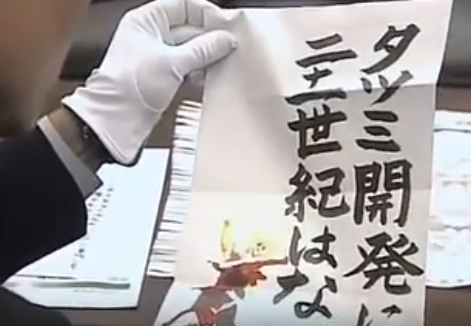 タツミ開発に
二十一世紀はな